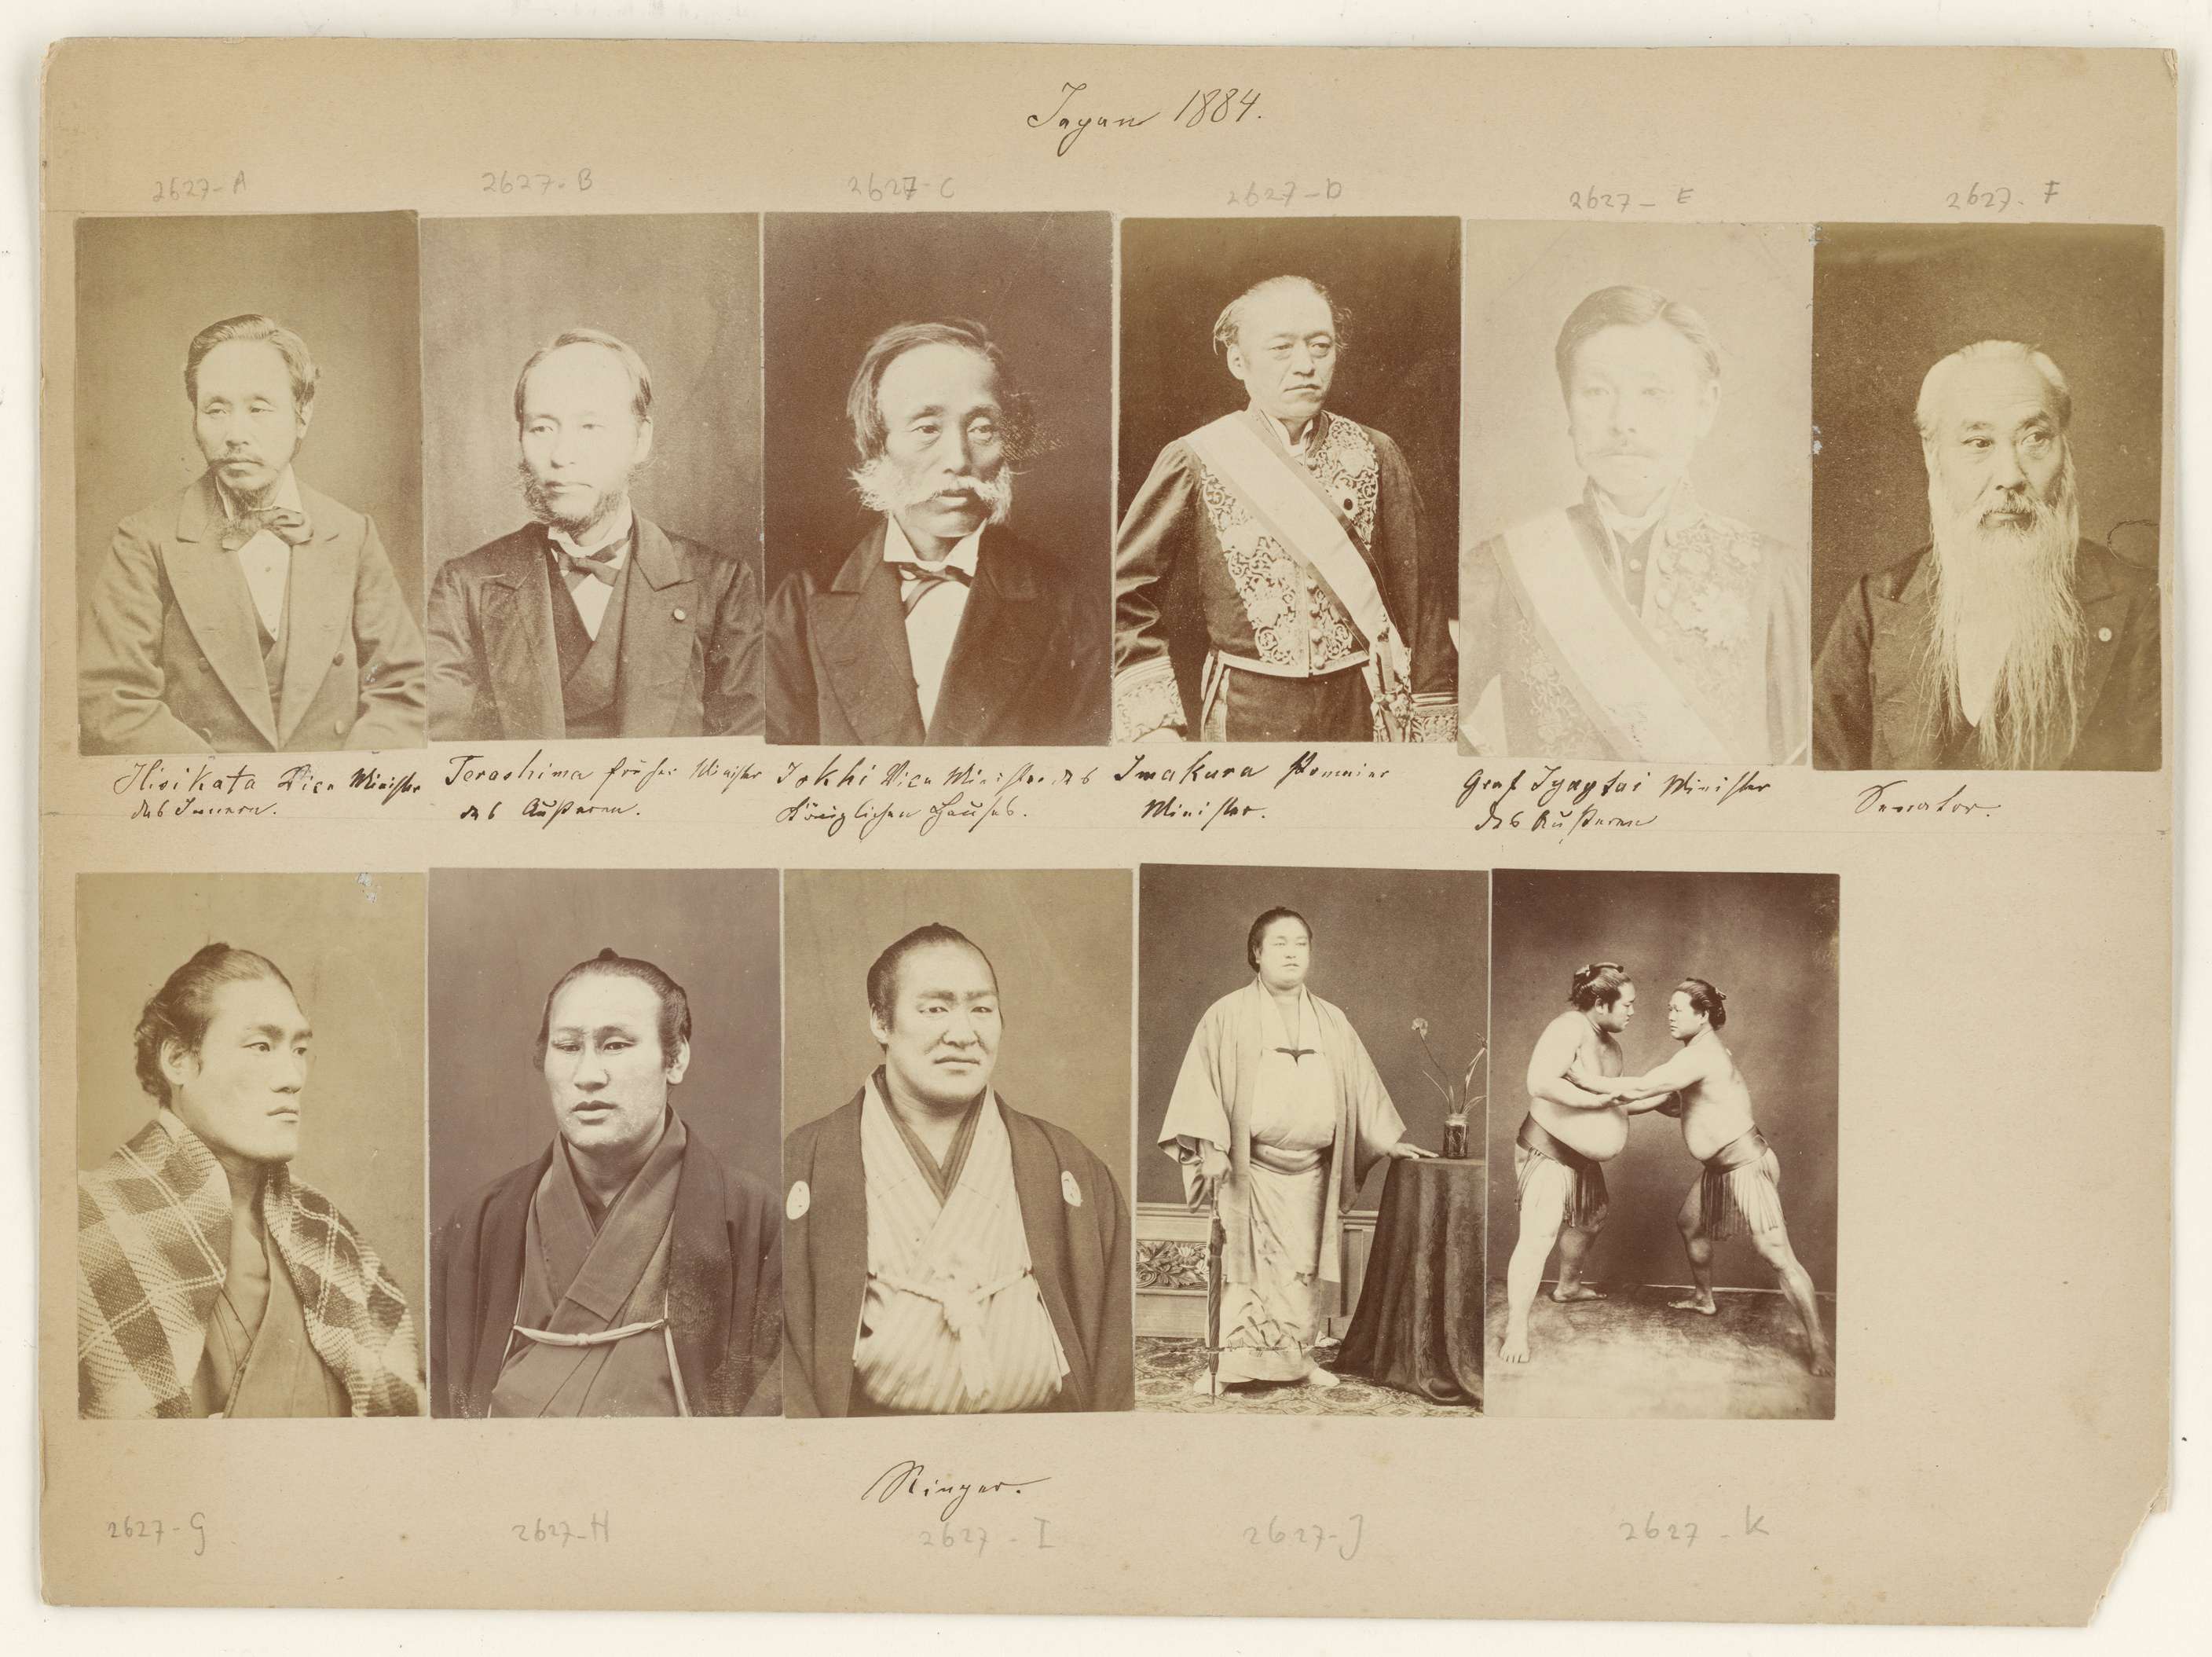 Japan 1884.
2627-A 2627-B 2627-C 2627-D 2627-E 2627-F
Hisikata Vice Minister
des Innern.
Terashima früher Minister
des Äußeren.
Jokhi Vice Minister des
Königlichen Hauses.
Imakura Premier
Minister.
Graf Minister
des Äußeren
Senator.
Ringer.
2627-G 2627-H 2627-I 2627-J 2627-K